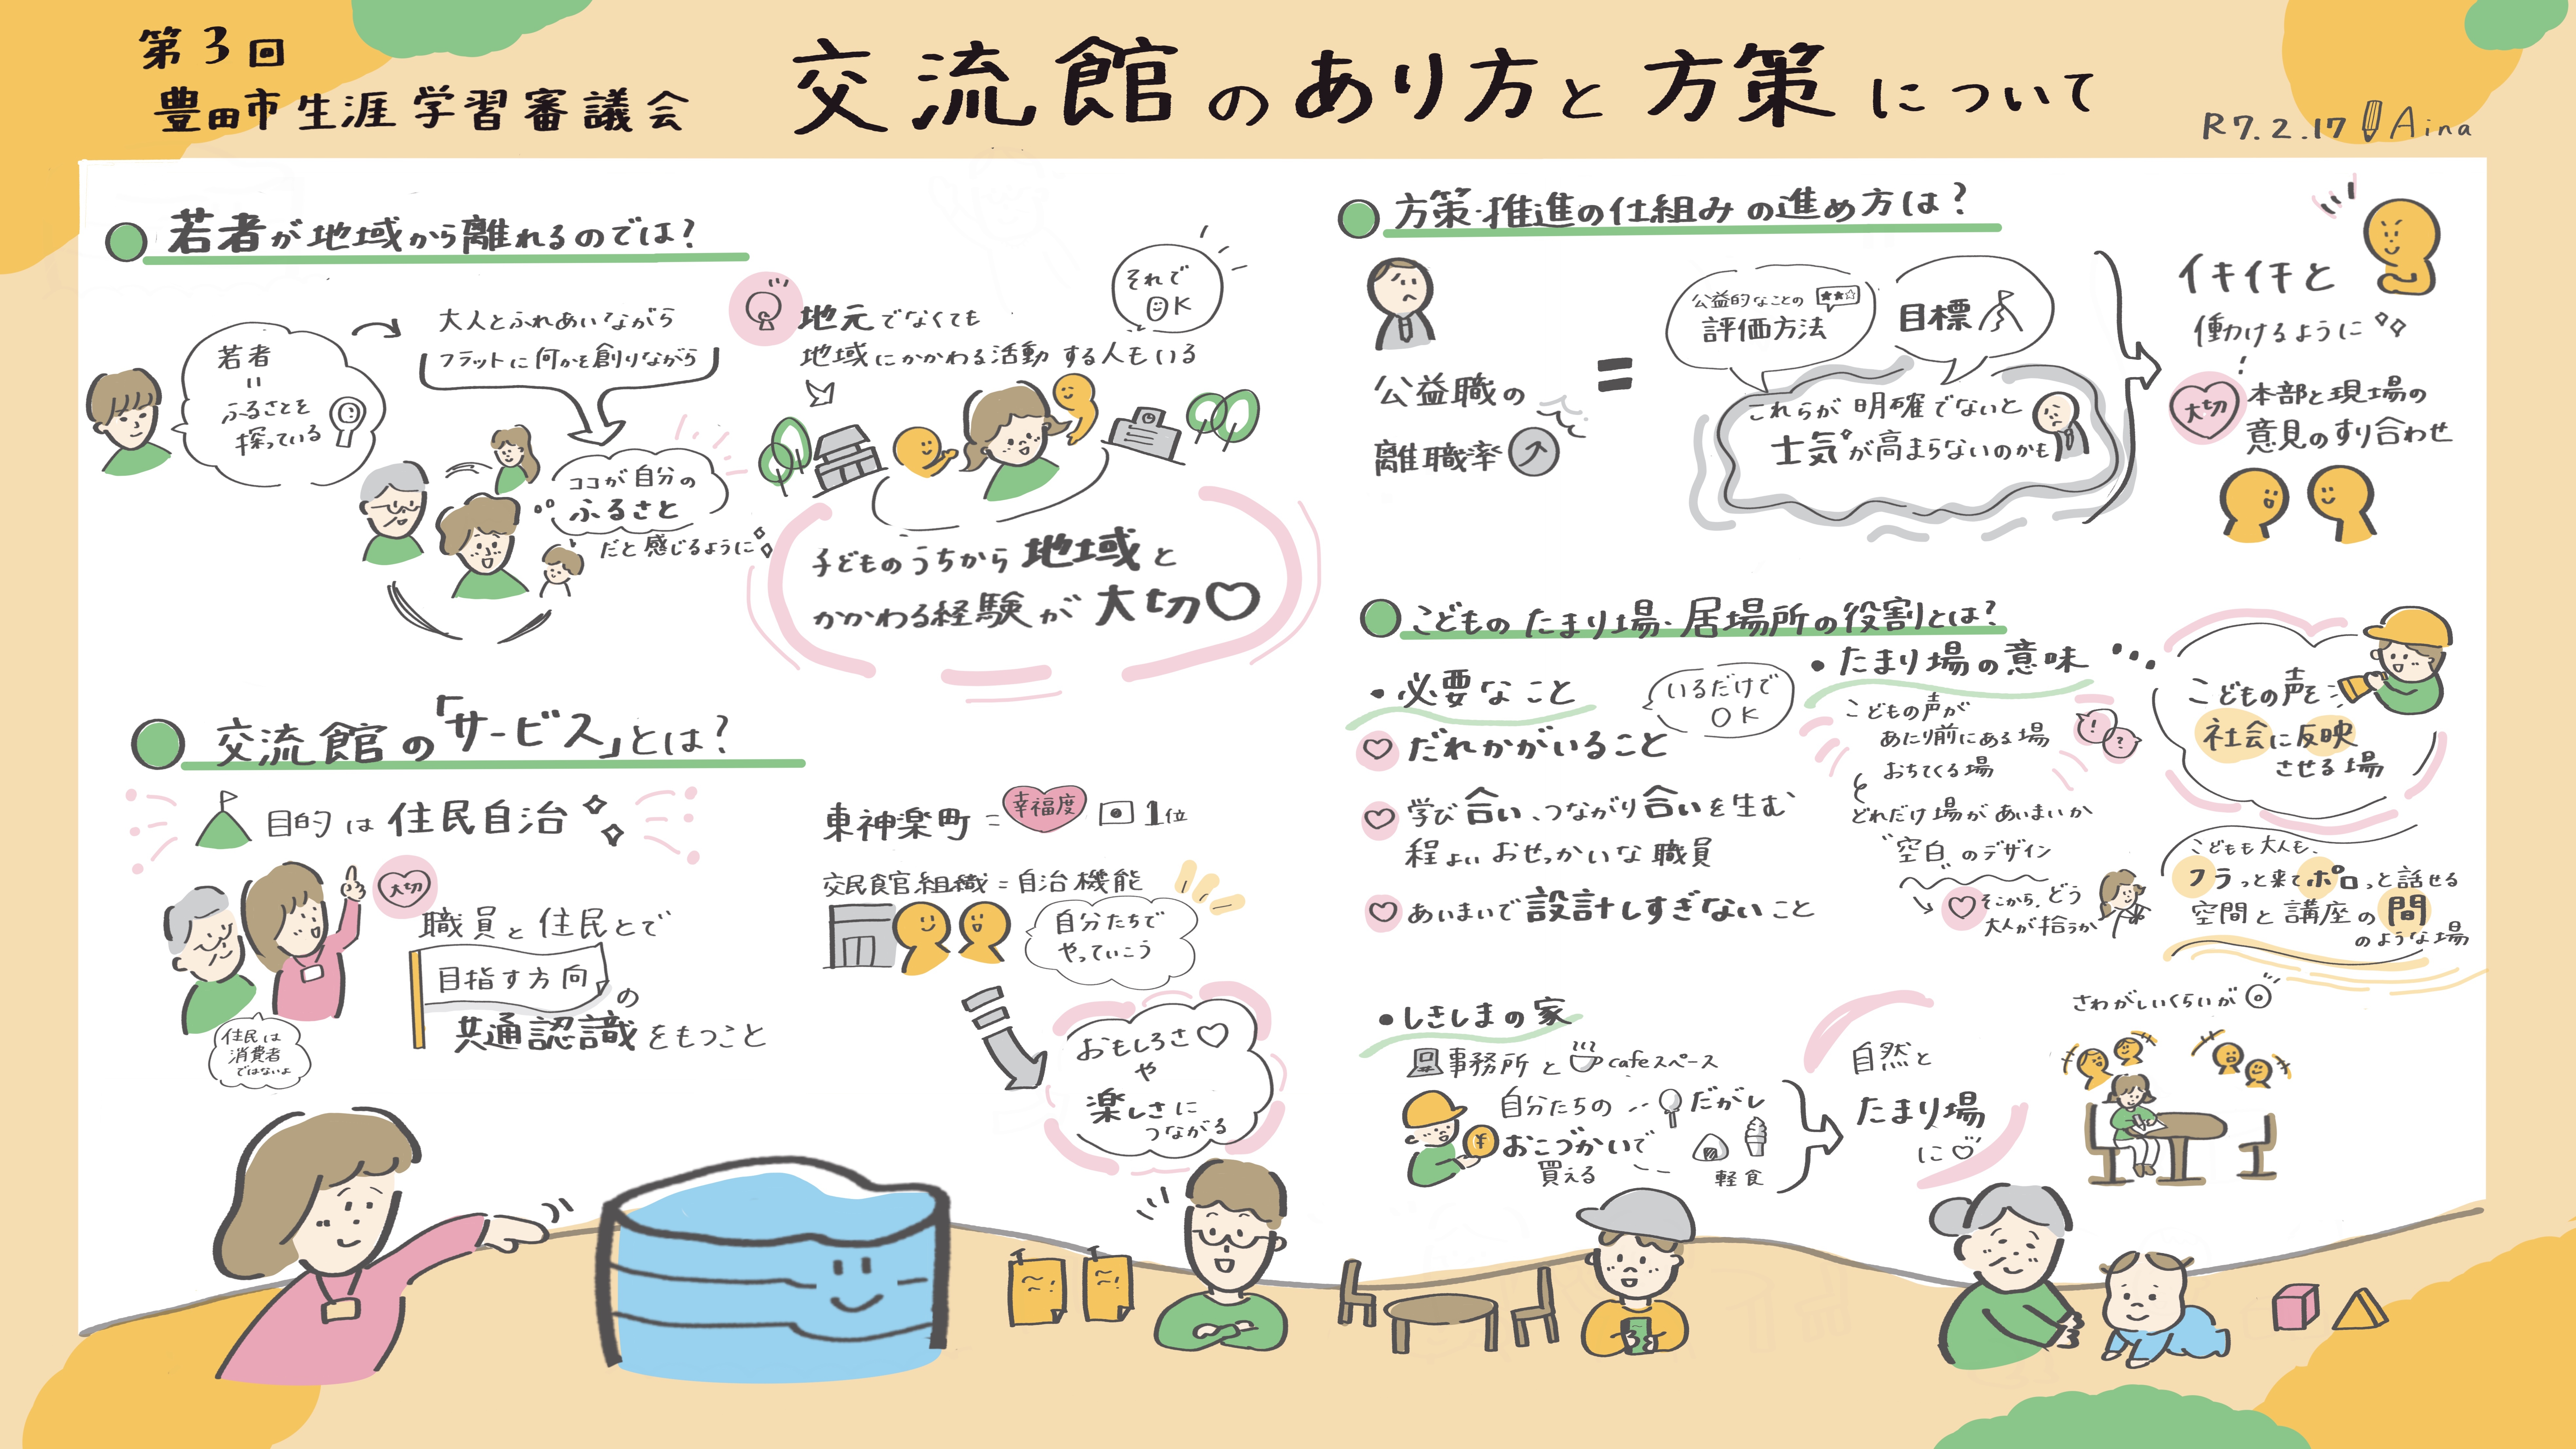 第3回
豊田市生涯学習審議会
交流館のあり方と方策について
R7.2.17 Aina
若者が地域から離れるのでは?
若者
=
ふるさとを
探っている
大人とふれあいながら
フラットに何かを創りながら
ココが自分の
ふるさと
だと感じるように
地元でなくても
地域にかかわる活動する人もいる
それで
OK
子どものうちから地域と
かかわる経験が大切♡
交流館の「サービス」とは?
目的は住民自治
大切
職員と住民とで
目指す方向の
共通認識をもつこと
住民は
消費者
ではないよ
東神楽町=幸福度 1位
交民食官組織=自治機能
自分たちで
やっていこう
おもしろさ♡
や
楽しさに
つながる
方策・推進の仕組みの進め方は?
公益職の
離職率
=
公益的なことの
評価方法
目標
これらが明確でないと
士気が高まらないのかも
イキイキと
働けるように
大切
本部と現場の
意見のすり合わせ
こどものたまり場・居場所の役割とは?
・必要なこと
いるだけで
OK
♡だれかがいること
♡学び合い、つながり合いを生む
程よいおせっかいな職員
♡あいまいで設計しすぎないこと
・たまり場の意味
こどもの声が
あたり前にある場
おちてくる場
どれだけ場があいまいか
"空白"のデザイン
♡そこから、どう
大人が拾うか
! ?
こどもの声を
社会に反映
させる場
こどもも大人も、
フラっと来てポロっと話せる
空間と講座の間
のような場
・しきしまの家
事務所とcafeスペース
自分たちの
おこづかいで
買える
¥
だがし
軽食
自然と
たまり場
に♡
さわがしいくらいが◎